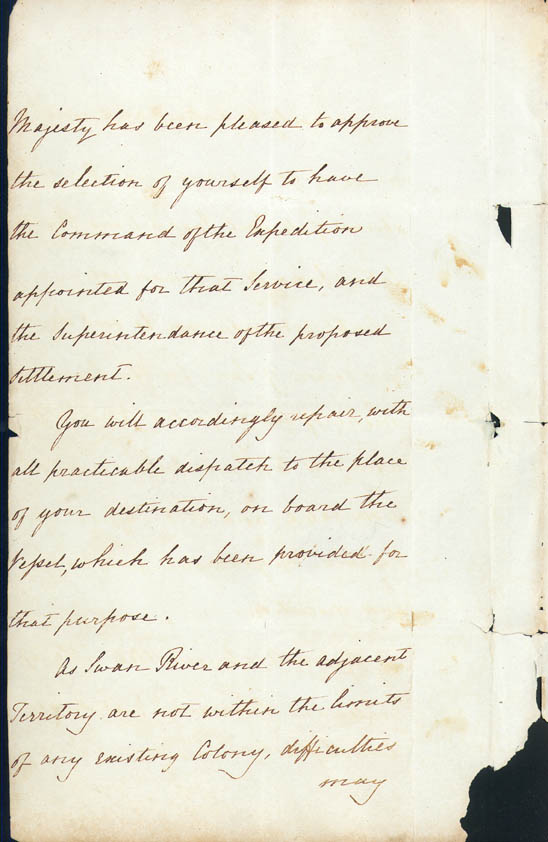 Majesty has been pleased to approve
the selection of yourself to have
the Command of the Expedition
appointed for that Service, and
the Superintendance of the proposed
Settlement.
You will accordingly repair, with
all practicable dispatch to the place
of your destination, on board the
Vessel, which has been provided for
that purpose.
As Swan River and the adjacent
Territory are not within the limits
of any existing Colony, difficulties
may